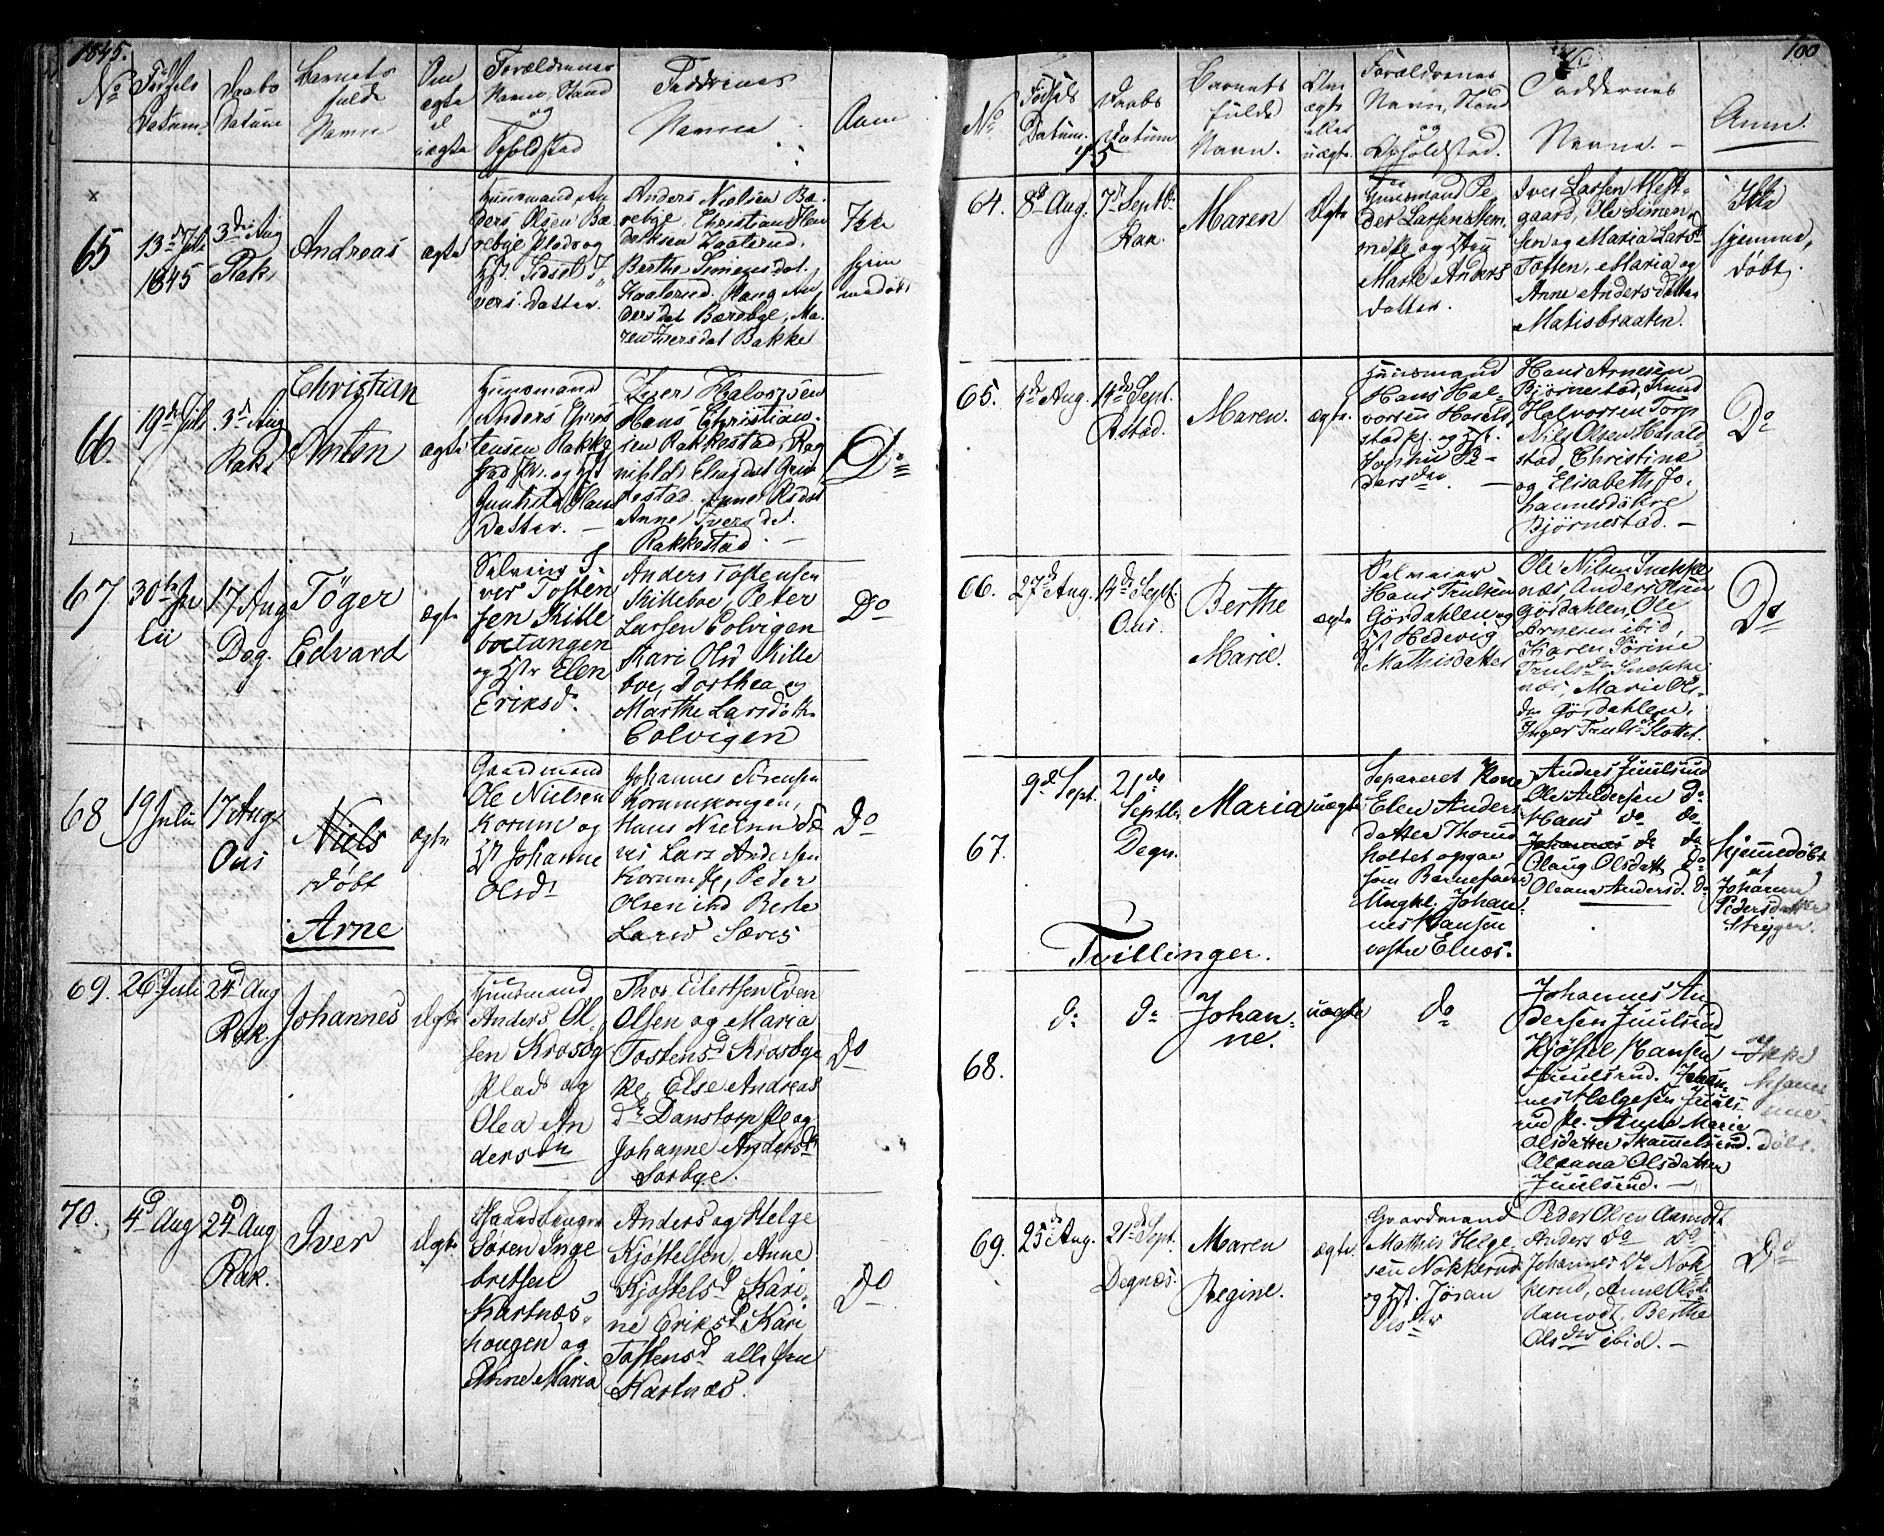 1845.
No
Fødsels
Datum.
Daabs
Datum
Barnets
fulde
Navn
Om
ægte
el
uægte
Forældrenes
Navn, Stand
og
Opholdstad
Faddernes
Navne
Anm
65
13de Juli
1845
3die Aug
Rak
Andreas
ægte
Huusmand An
ders Olsen Bæ
rebye Plads og
Hst. Sidsel I
vers Datter.
Anders Nielsen Bæ
rebye Christian Hen
driksen Kaaterud.
Berthe Simensdat.
Kaaterud. An
dersdat Bærebye, Ma
ren Iversdat Bakke
Ikke
hjem
medøbt
66
19de Juli
3de Aug
Rak
Christian
Anton
ægte
Huusmand
Anders
tensen Rakke
stad og Hst
Hans
Datter.
Iver Halvorsen
Hans Christian
sen Rakkestad, Rag
nhild
Anne Olsdat
Anne Iversdat.
Rakkestad.
Do
67
30te Ju
lii
17 Aug
Deg.
Töger
Edvard
ægte
Selveier I
ver Tosten
sen Kille
boetangen
og Hstr Elen
Eriksd.
Anders Tostensen
Killeboe, Peter
Larsen Colvigen
Mari Olsd Kille
boe, Dorthea og
Marthe Larsdötre
Colvigen
Do
68
19 Julii
17 Aug
Ous
Niels
døbt
Arne
ægte
Gaardmand
Ole Nielsen
Korum og
Hst Johanne
Olsdr
Johannes Sörensen
Korumspongen,
Hans Nielsen Sæ
ves Lars Andersen
Korum, Peder
Olsen ibd Berte
Larsd Sæves
Do
69.
26 Juli
24d Aug
Rak.
Johannes
Ægte
Huusmand
Anders Ol
sen Krosby
Plads og
Olea An
dersdtr
Thor Eilertsen Even
Olsen og Maria
Tostensd Krosbye
Pl, Else Andreas
dr Danstorp Pl og
Johanne Andersdtr
Sorbye.
Do
70.
4d Aug
24d Aug
Rak.
Iver
Ægte
Søren Inge
bretsen
Kartnæs
hougen og
Anne Maria
Anders og Helge
Kjøstelsen, Anne
Kjøstelsd, Kari
ne Eriksd, Kari
Tostensd alle fra
Kartnæs.
Do
100
No
Fødsels
Datum.
Daabs
Datum
Barnets
fulde
Navn.
Om
ægte
eller
uægte.
Forældrenes
Navn, Stand
og
Opholdstad.
Faddernes
Navne.
Anm.
64.
8de Aug.
7de Septb.
Rak.
Maren
Ægte
Huusmand Pe
der Larsen
og Hst
Marte Anders
datter.
Iver Larsen Vest
gaard, Ole Simen
sen og Maria Lars
Toften, Maria og
Anne Andersdatter
Matisbraaten.
Ikke
hjemme,
døbt.
65.
4de Aug.
14de Sept.
 Østad.
Maren.
ægte.
Huusmand
Hans Hal
vorsen Harald
stad pl. og Hst.
Sophie Pe
dersdtr.
Hans Arnesen
Bjørnestad, Knud
Halvorsen Torp
Nils Olsen Harald
stad, Christine
og Elisabeth Jo
hannesdøtre
Bjørnestad.
Do
66.
27de Aug.
14de Sept.
Ous.
Berthe
Marie.
ægte
Selveier
Hans Trulsen
Gørdahlen og
Hst Hedevig
Mathisdatter
Ole Nilsen Snekke
næs, Anders Olsen
Gørdahlen, Ole
Arnesen ibid,
Karen Tørine
Trulsdtr Snekke
næs, Marie Ols
dtr Gørdahlen,
Inger Trulsd Slottet.
Do
67.
9de Sept.
21de
Septbr
Degn.
Maria
uægte
Separeret Kone
Elen Anders
datter Thorud
holtet opgav
som Barnefader
Ungkl. Johan
nes Hansen
vestre Elnæs.
Anders Juulsrud
Ole Andersen do
Hans do do
Johannes do do
Olaug Olsdatt do
Oleana Andersd. do
Hjemmedøbt
af
Johanne
Pedersdatter
Strygen.
Tvillinger.
68.
do
do
Johan
ne.
uægte
do
Johannes An
dersen Juulsrud
Kjøstel Hansen
Juulsrud. Johan
nes Helgesen Juuls
rud Pl. Anne Marie
Olsdatter Skammelsrud.
Oleana Olsdatter
Juulsrud.
Ikke
hjem
me
døbt.
69.
25de Aug.
21de Sept.
Degnæs.
Maren
Regine.
ægte.
Gaardmand
Mathis Helge
sen Nokkerud
og Hst. Jøran
Olsdtr
Peder Olsen Aamodt
Anders do do
Johannes do Nok
kerud, Anne Olsdr
Aamodt, Berthe
Olsdtr ibid.
Do